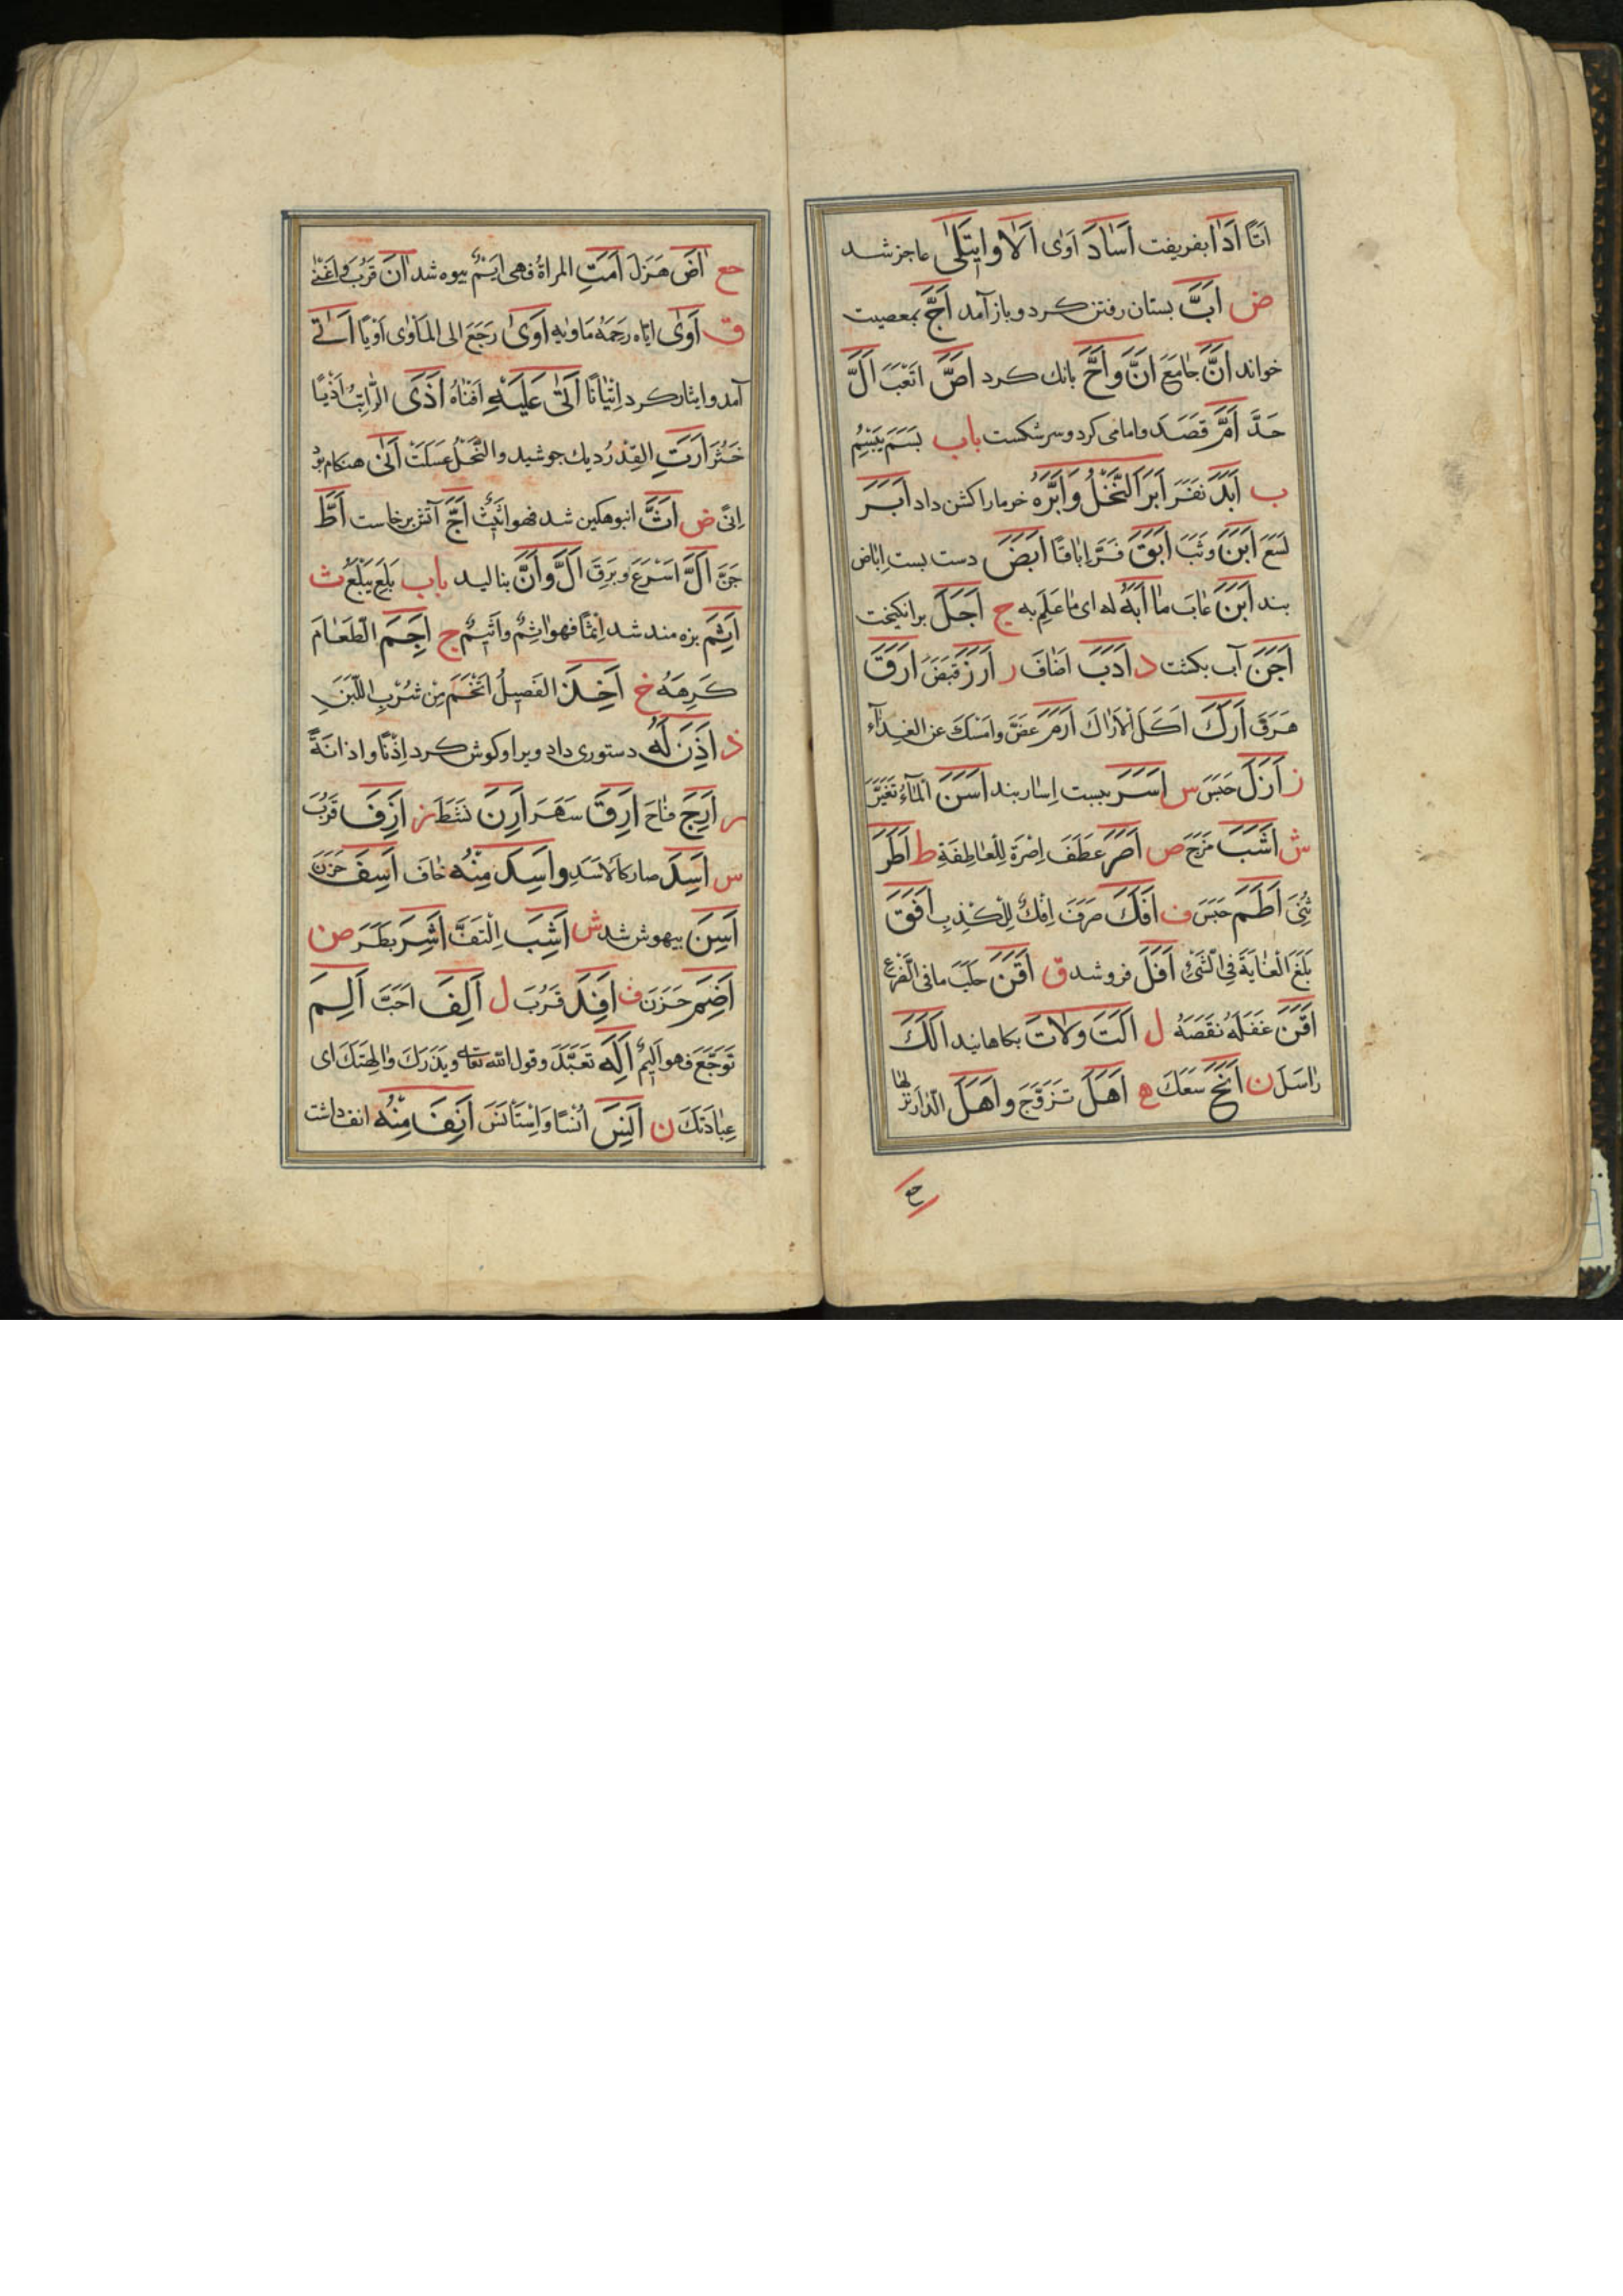 اَتًا اَدَا بفریفت اَسَادَ اَوٰی اَلَا وایتَلٰی عاجز شد
ض اَبَّ بستان رفتن کرد و باز آمد اَجَّ بمعصیت
خواند اَنَّ جٰامَعَ اَنَّ وَاَحَّ بانک کرد اَصَّ اَتْعَبَ اَلَّ
حَدَّ اَمَّ قَصَدَ وامامی کرد و سر شکست باب بَسَمَ یَبْسِمُ
ب اَبَدَ نَفَرَ اَبَرَ النَّخْلُ وَاَبَّرَهُ خرما را کشن داد اَبَرَ
لَسَعَ اَبَنَ وَثَبَ اَبَقَ فَرَّ اِبَاقًا اَبَضَ دست بست اِبَاض
بند اَبَنَ عٰابَ مٰا اَبَهُ له ای مٰا عَلِم به ج اَجَلَ برانکیخت
اَجَنَ آب بکشت د اَدَبَ اَضٰافَ ر اَرَزَ قَبَضَ اَرَقَ
هَرَقَ اَرَكَ اَکَلَ الْاَرٰاكَ اَرَمَ عَضَّ وامْسَكَ عن الغِذآء
ز اَزَلَ حَبَسَ س اَسَرَ ببست اِسٰار بند اَسَنَ الْمَآءُ تَغَیَّرَ
ش اَشَبَ مَزَجَ ص اَصَرَ عَطَفَ اِصْرَة لِلْعٰاطِفَةِ ط اَطَرَ
ثَنٰی اَطَمَ حَبَسَ ف اَفَكَ صَرَفَ اِفْكٌ لِلْکَذِبِ اَفَقَ
بَلَغَ الْغٰایَةَ فِی الشَّیْءِ اَفَلَ فرو شد ق اَقَنَ حَلَبَ مافی الضَّرْعِ
اَقَنَ عَقَلَهُ نَقَصَهُ ل اَلَتَ وَلَاتَ بکاهانید اَلَكَ
رٰاسَلَ ن اَنَحَ سَعَلَ ه اَهَلَ تَزَوَّجَ واَهَلَ الدّار نزلها
حع
حع اَضَ هَزَلَ اَمَتِ المراةُ فهی اَیِّمٌ بیوه شد اَنَ قَرُبَ وَاَغْنٰی
ق اَوٰی ایّاه رَحِمَهُ مَاوِیةِ اَوَیٰ رَجَعَ الی المَاْوٰی اَوْیًا اَتٰی
آمد و ایثار کرد اِتْیٰانًا اَتٰی عَلَیْهِ اَفْنٰاهُ اَذَی الرّائِبُ اَذْیًا
خَثُرَ اَرَتِ القِدْرُ دیك جوشید و النَّحْلُ عَسَلَتْ اَنٰی هنکام بود
اِنًی ض اَثَّ انبوهکین شد فهو اثیثٌ اَجَّ آتش برخاست اَطَّ
حَنَّ اَلَّ اَسْرَعَ و بَرِقَ اَلَّ وَاَنَّ بنالید باب بَلِعَ یَبْلَعُ ث
اَثِمَ بزه مند شد اِثْمًا فهو اٰثِمٌ واَثیمٌ ج اَجِمَ الطَّعٰامَ
کَرِهَهُ خ اَخِذَ الفَصیلُ اتَّخَمَ مِن شُرْبِ اللَّبَنِ
ذ اَذِنَ لَهُ دستوری داد ویرا و کوش کرد اِذْنًا و اذانَةً
ر اَرِجَ فٰاحَ اَرِقَ سَهَرَ اَرِنَ نَشَطَ ز اَزِفَ قَرُبَ
س اَسِدَ صار کالْاَسَدِ واَسِدَ مِنْهُ خٰافَ اَسِفَ حَزِنَ
اَسِنَ بیهوش شد ش اَشِبَ اِلْتَفَّ اَشِرَ بَطَرَ ض
اَضِمَ حَزَنَ ف اَفِدَ قَرُبَ ل اَلِفَ اَحَبَّ اَلِمَ
تَوَجَّعَ فهو اَلیمٌ اَلِهَ تَعَبَّدَ و قول الله تعالی ویَذَرَكَ وَاٰلِهَتَكَ ای
عِبٰادَتَكَ ن اَنِسَ اُنْسًا وَاِسْتَاْنَسَ اَنِفَ مِنْهُ انف داشت